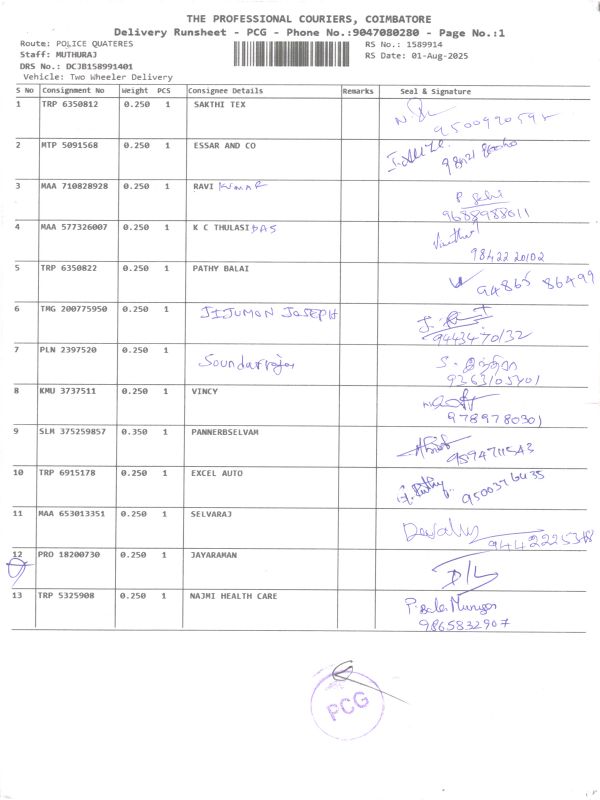 THE PROFESSIONAL COURIERS, COIMBATORE
Delivery Runsheet - PCG - Phone No.:9047080280 - Page No.:1
Route: POLICE QUATERES
RS No.: 1589914
Staff: MUTHURAJ
RS Date: 01-Aug-2025
DRS No.: DCJB158991401
Vehicle: Two Wheeler Delivery
S No Consignment No Weight PCS Consignee Details Remarks Seal & Signature
1 TRP 6350812 0.250 1 SAKTHI TEX
2 MTP 5091568 0.250 1 ESSAR AND CO
3 MAA 710828928 0.250 1 RAVI KUMAR
9688988011
4 MAA 577326007 0.250 1 K C THULASI DAS
98422 20102
5 TRP 6350822 0.250 1 PATHY BALAI
94865 86499
6 TMG 200775950 0.250 1 JIJUMON JOSEPH
9443470132
7 PLN 2397520 0.250 1 Soundarraja
8 KMU 3737511 0.250 1 VINCY
9789780301
9 SLM 375259857 0.350 1 PANNERBSELVAM
9594711543
10 TRP 6915178 0.250 1 EXCEL AUTO
9500376435
11 MAA 653013351 0.250 1 SELVARAJ
12 PRO 18200730 0.250 1 JAYARAMAN
13 TRP 5325908 0.250 1 NAJMI HEALTH CARE
P. Bala Murugan
9865832907
PCG